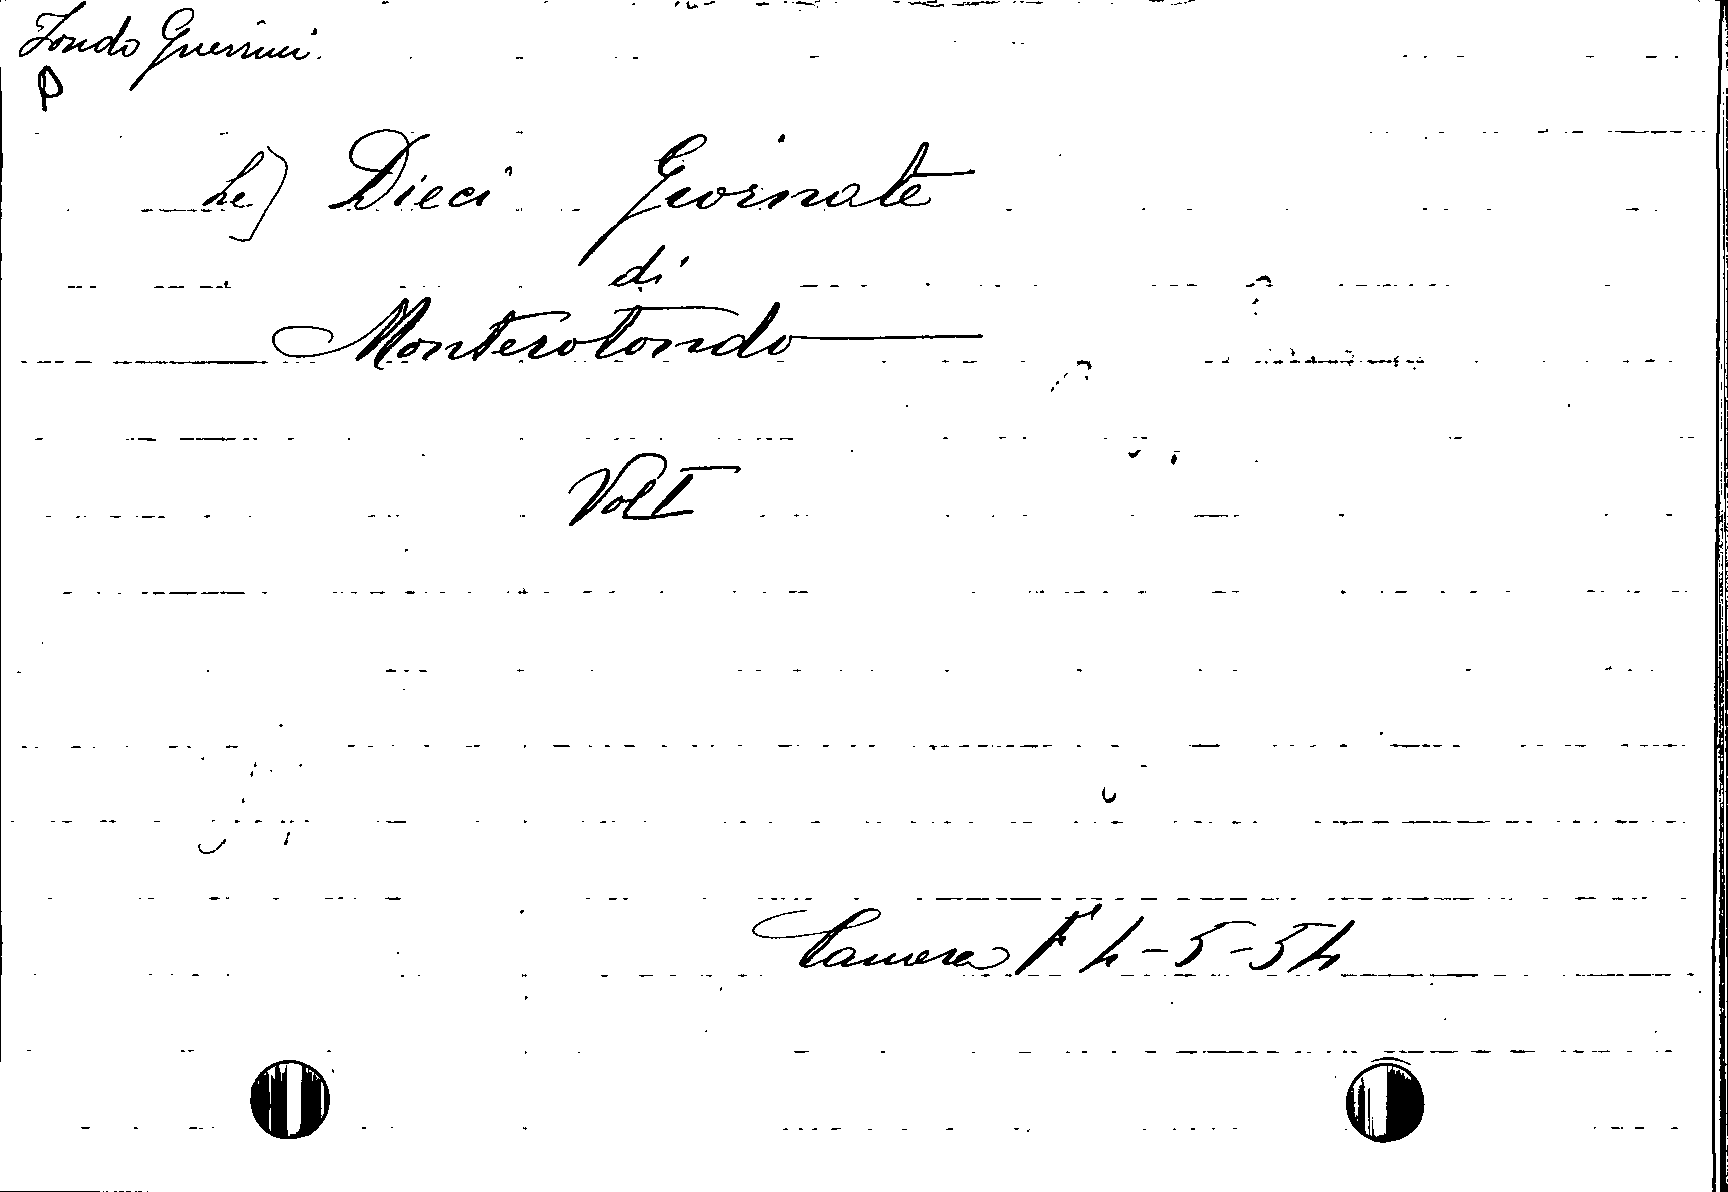 Fondo Guerrini.
P
Le) Dieci Giornate
di
Monterotondo
Vol I
Camera F 4-5-54